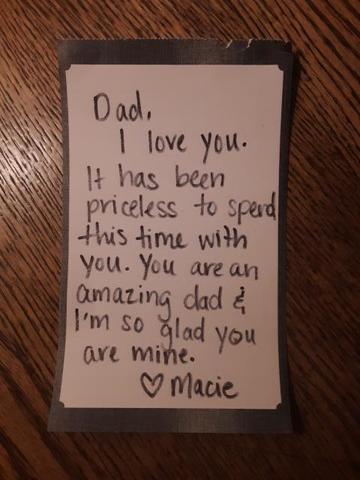 Dad,
I love you.
It has been
priceless to spend
this time with
you. You are an
amazing dad &
I'm so glad you
are mine.
♡ Macie